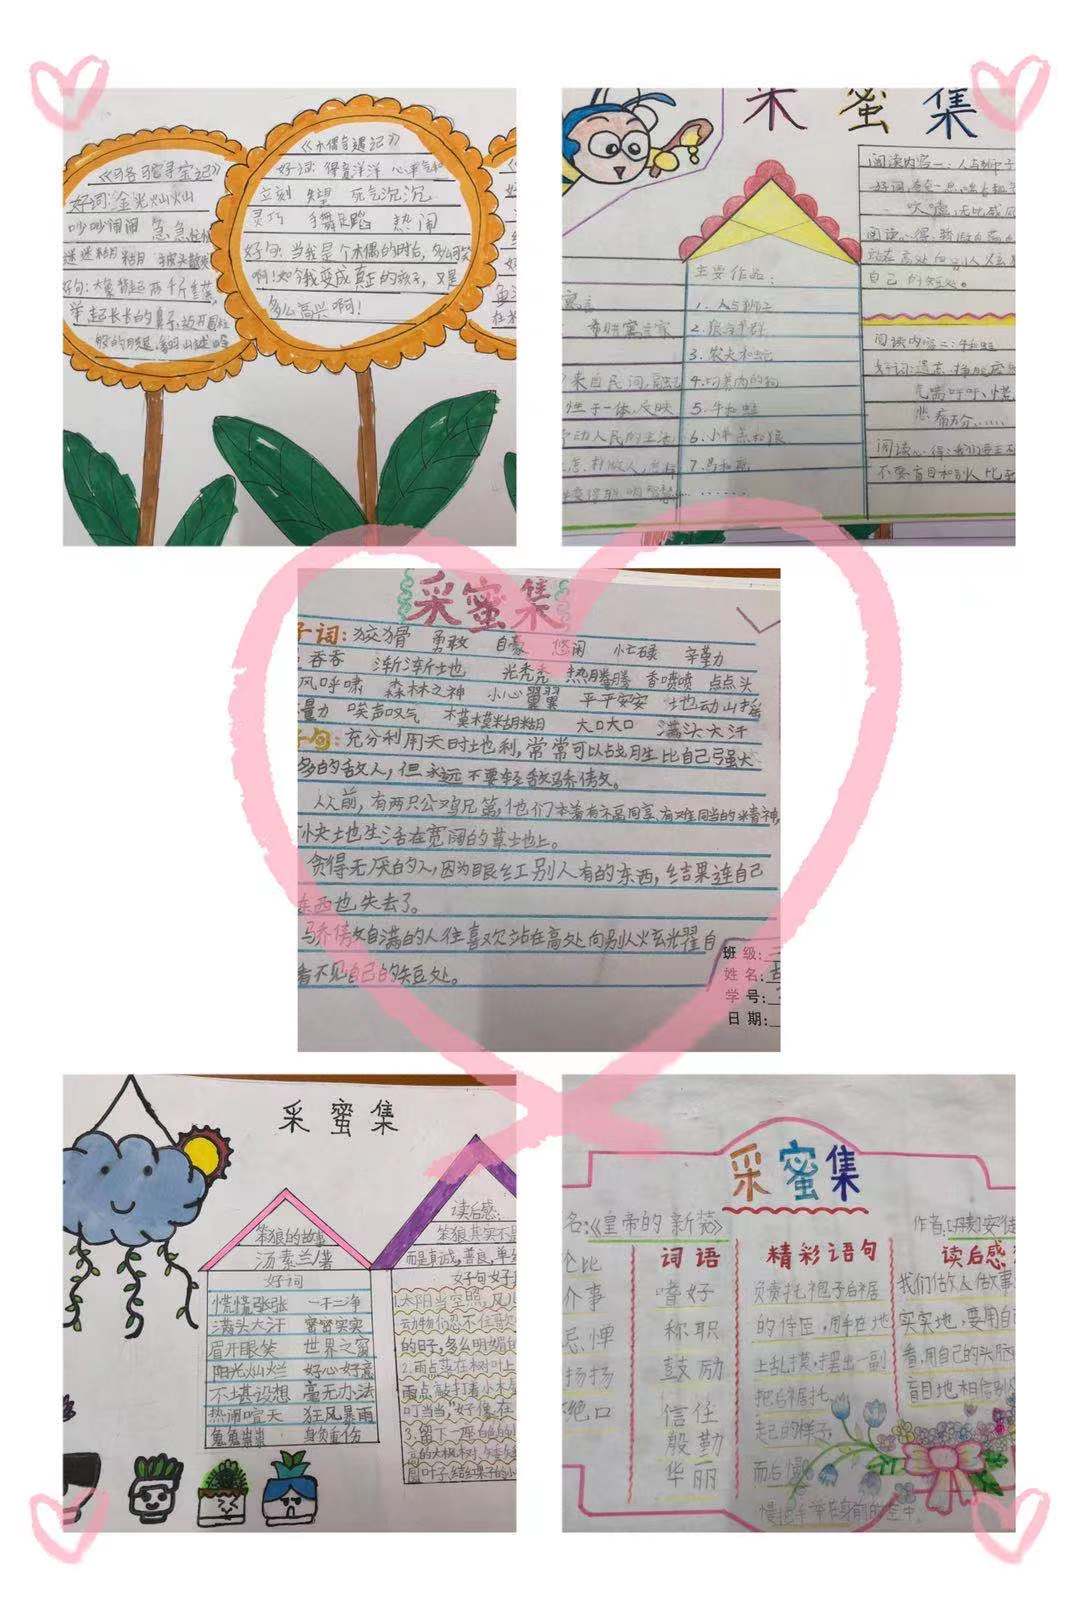 《木偶奇遇记》
好词: 得意洋洋 心平气和
立刻 失望 死气沉沉
灵巧 手舞足蹈 热闹
好句: 当我是个木偶的时后, 多么可笑
啊! 如今我变成真正的孩子, 又是
多么高兴啊!
寻宝记》
好词: 金光灿灿
吵吵闹闹 急急忙忙
迷迷糊糊
举起长长的鼻子,
采 蜜 集
主要作品:
1. 人与狮王
2. 狼与羊群
3. 农夫和蛇
5. 牛和蛙
6. 小羊羔和狼
7.
来自民间, 融
性于一体, 反映
劳动人民的生活
阅读内容一: 人与狮子
自己的短处。
阅读内容二: 牛和蛙
气喘吁吁、
悲痛万分......
阅读心得: 我们要
不要盲目和别人比较
采蜜集
词: 狡猾 勇敢 自豪 悠闲 忙碌 辛勤
吞吞 渐渐地 光秃秃 热腾腾 香喷喷 点点头
风呼啸 森林之神 小心翼翼 平平安安 地动山摇
量力 唉声叹气 模模糊糊 大口大口 满头大汗
句: 充分利用天时地利, 常常可以战胜比自己强大
多的敌人, 但永远不要轻敌骄傲。
从前, 有两只公鸡兄弟, 他们本着有福同享有难同当的精神,
快地生活在宽阔的草地上。
贪得无厌的人, 因为眼红别人有的东西, 结果连自己
东西也失去了。
骄傲自满的人往喜欢站在高处向别人炫耀自
看不见自己的短处。
班 级:
姓 名:
学 号:
日 期:
采 蜜 集
笨狼的故事
汤素兰/著
好词
慌慌张张 一干二净
满头大汗 密密实实
眉开眼笑 世界之窗
阳光灿烂 好心好意
不堪设想 毫无办法
热闹喧天 狂风暴雨
鬼鬼祟祟 身负重伤
读后感:
笨狼其实不是
而是真诚, 善良, 单
好句好
太阳当空照, 风儿
动物们忍不住喜欢
的日子, 多么明媚
2. 雨点落在树叶上
雨点敲打着小木
叮当当, "好像在
3. 留下一座白色的
采蜜集
名:《皇帝的新装》
作者: [丹麦]安徒
伦比
个事
忌惮
扬扬
绝口
词语
嗜好
称职
鼓励
信任
殷勤
华丽
精彩语句
负责托袍子后裾
的侍臣, 用手在地
上乱摸, 摆出一副
把后裾托
起的样子,
而后慢
慢把手举在身前的空中。
读后感
我们做人做事
实实地, 要用自己
看, 用自己的头脑
盲目地相信别